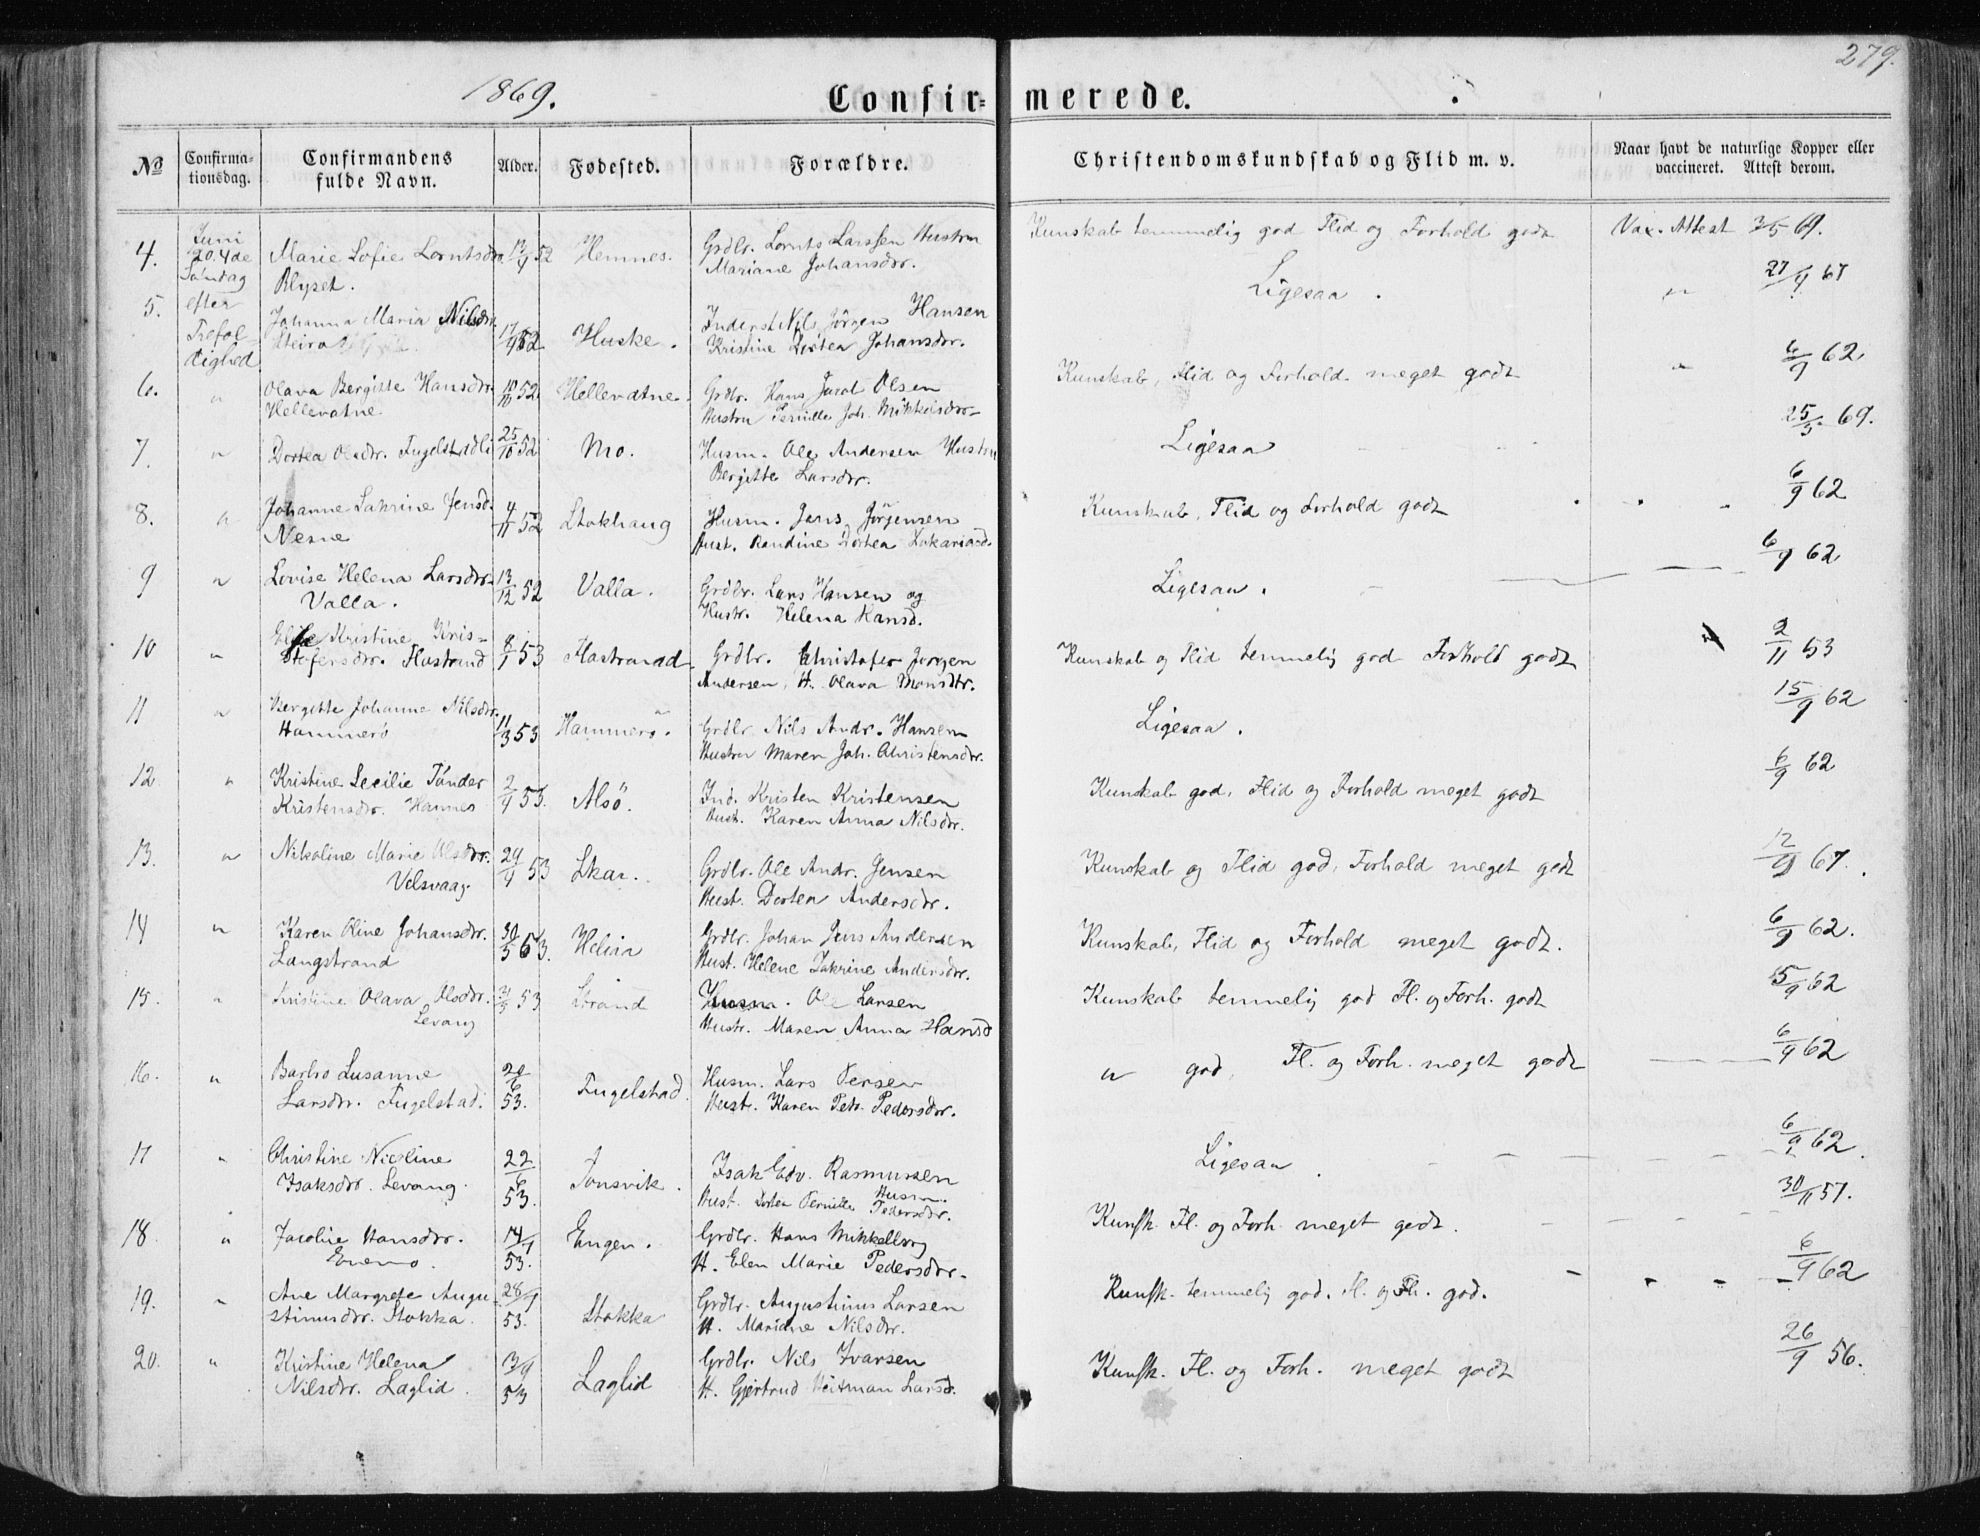 279.
1869.
Confir=merede.
No
Confirma-
tionsdag.
Confirmandens
fulde Navn.
Alder.
Fødested.
Forældre.
Christendomskundskab og Flid m. v.
Naar havt de naturlige Kopper eller
vaccineret. Attest derom.
4.
Juni
20. 4de
Søndag
Marie Sofie Lorntsdr.
52
Hemnes.
Grdbr. Lornts Larssen Hustru
Mariane Johansdr.
Kunskab temmelig god Flid og Forhold godt
Vax. Attest 3/5 69.
5.
efter
Trefol
dighed
Johanna Maria Nilsdr.
52
Huske.
Inderst Nils Jörgen Hansen
Kristine Dortea Johansdr.
Ligesaa.
"
67
6.
"
Olava Bergitte Hansdr.
Hellevatne
52
Hellevatne.
Grdbr. Hans Jacob Olsen
Hustru Pernille Joh. Mikkelsdr.
Kunskab, Flid og Forhold meget godt
"
6/9 62
7.
"
Dortea Olsdr. Fugelstadli
25/10 52
Mo.
Husm. Ole Andersen Hustru
Bergitte Larsdr.
Ligesaa
69.
8.
"
Johanne Sakrine Jensd.
Nesne
4/11 52
Stokhaug
Husm. Jens Jörgensen
Hust. Randine Dortea Zakariasd.
Kunskab, Flid og Forhold godt
6/9 62
9
"
Lovise Helena Larsdr.
Valla.
13/12 52
Valla.
Grdbr. Lars Hansen og
Hustr. Helena Hansd.
Ligesaa.
6/9 62
10
"
Kristine Kris-
stofersdr. Flostrand
8/1 53
Flostrand
Grdbr. Christofer Jorgen
Andersen, H. Olava Monsdtr.
Kunskab og Flid temmelig god Forhold godt
"
2/11 53
11
"
Bergitte Johanne Nilsdr.
Hammerö
11/3 53
Hammerö.
Grdbr. Nils Andr. Hansen
Hustru Maren Joh. Christensdr.
Ligesaa.
15/9 62
12
"
Kristine Secilie Tönder
Kristensdr. Hamnes
2/4 53.
Alsö.
Ind. Kristen Kristensen
Hust. Karen Anna Nilsdr.
Kunskab god, Flid og Forhold meget godt
6/9 62
13.
"
Nikoline Marie Olsdr.
Velsvaag.
29/4 53
Skar.
Grdbr. Ole Andr. Jensen
Hust. Dortea Andersdr.
Kunskab og Flid god, Forhold meget godt
12/9 67.
14
"
Karen Oline Johansdr.
Langstrand
30/5 53.
Grdbr. Johan Jens Andersen
Hust. Helene Zakrine Andersdr.
Kunskab, Flid og Forhold meget godt.
6/9 62.
15.
"
Kristine Olava Olsdr.
Levang
53
Strand
Husm. Ole Larsen
Hustr. Maren Anna Hansd
Kunskab temmelig god Fl. og Forh. godt
15/9 62
16.
"
Barbro Susanne
Larsdr. Fugelstad.
53.
Fugelstad.
Husm. Lars Persen
Hust. Karen Petr. Pedersdr.
" god, Fl. og Forh. meget godt
6/9 62
17
"
Christine Nicoline
Isaksdr. Levang.
22/6
53.
Jonsvik.
Isak Edv. Rasmussen
Husm.
Hust. Dortea Pernille Pedersdr.
Ligesaa.
6/9 62.
18.
"
Jacobine Hansdr.
14/7
53.
Engen.
Grdbr. Hans Mikkelborg
H. Elen Marie Pedersdr.
Kunsk. Fl. og Forh. meget godt.
30/11 57.
19.
"
Ane Margrete Augu
stinusdr. Stokka.
28/7
53.
Stokka
Grdbr. Augustinus Larsen
H. Mariane Nilsdr.
Kunsk. temmelig god. Fl. og Fh. god.
6/9 62
20.
"
Kristine Helena
Nilsdr. Laglid.
3/9
53
Laglid
Grdbr. Nils Ivarsen
H. Gjertrud Heitman Larsd.
Kunsk. Fl. og Forh. meget godt
26/9 56.